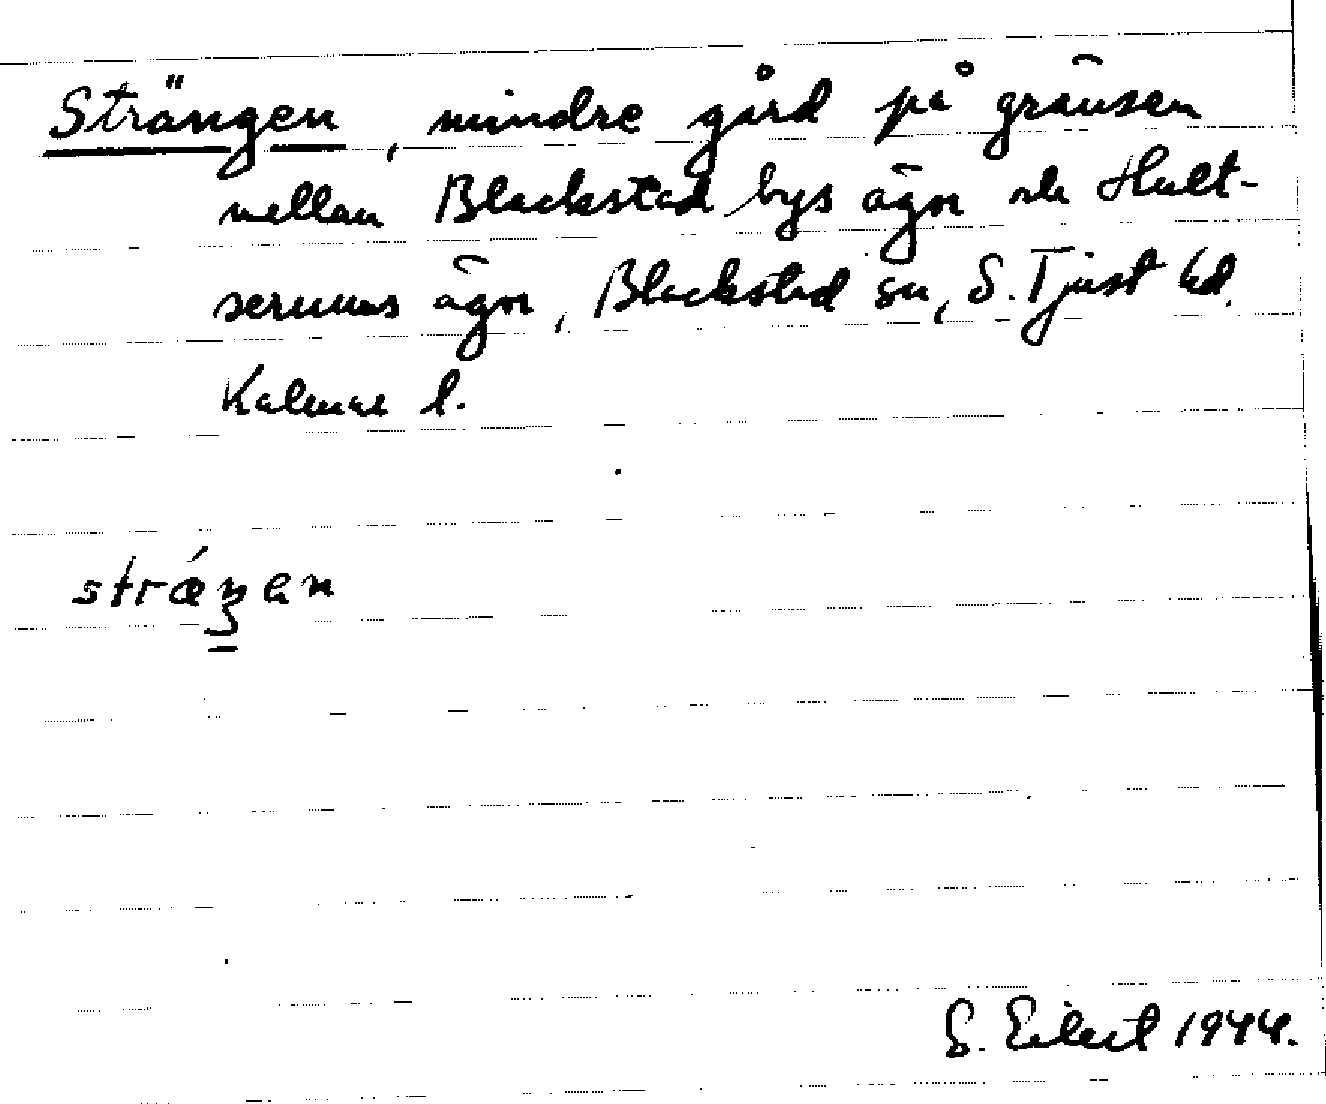 Strängen, mindre gård på gränsen
mellan Blackstad bys ägor och Hult-
serums ägor, Blackstad sn, S. Tjust hd.
Kalmar l.
strǽŋen
S. Eilert 1944.